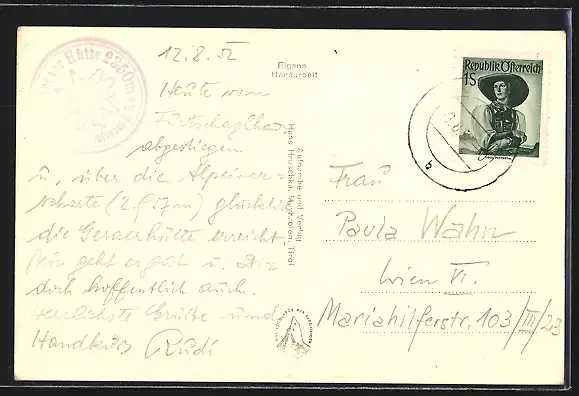 12.8.52
Eigene
Handarbeit
Hütte 2350m
Heute vom
abgestiegen
u. über die
scharte (2.917m) glücklich
die Geraerhütte erreicht.
Mir geht es gut u. Dir
doch hoffentlich auch.
Herzlichste Grüße und
Handkuß Rudi
Aufnahme und Verlag
Hans Hruschka, Mayrhofen, Tirol
Republik Österreich
1S
b
Frau
Paula Wahn
Wien VI.
Mariahilferstr. 103/III/23